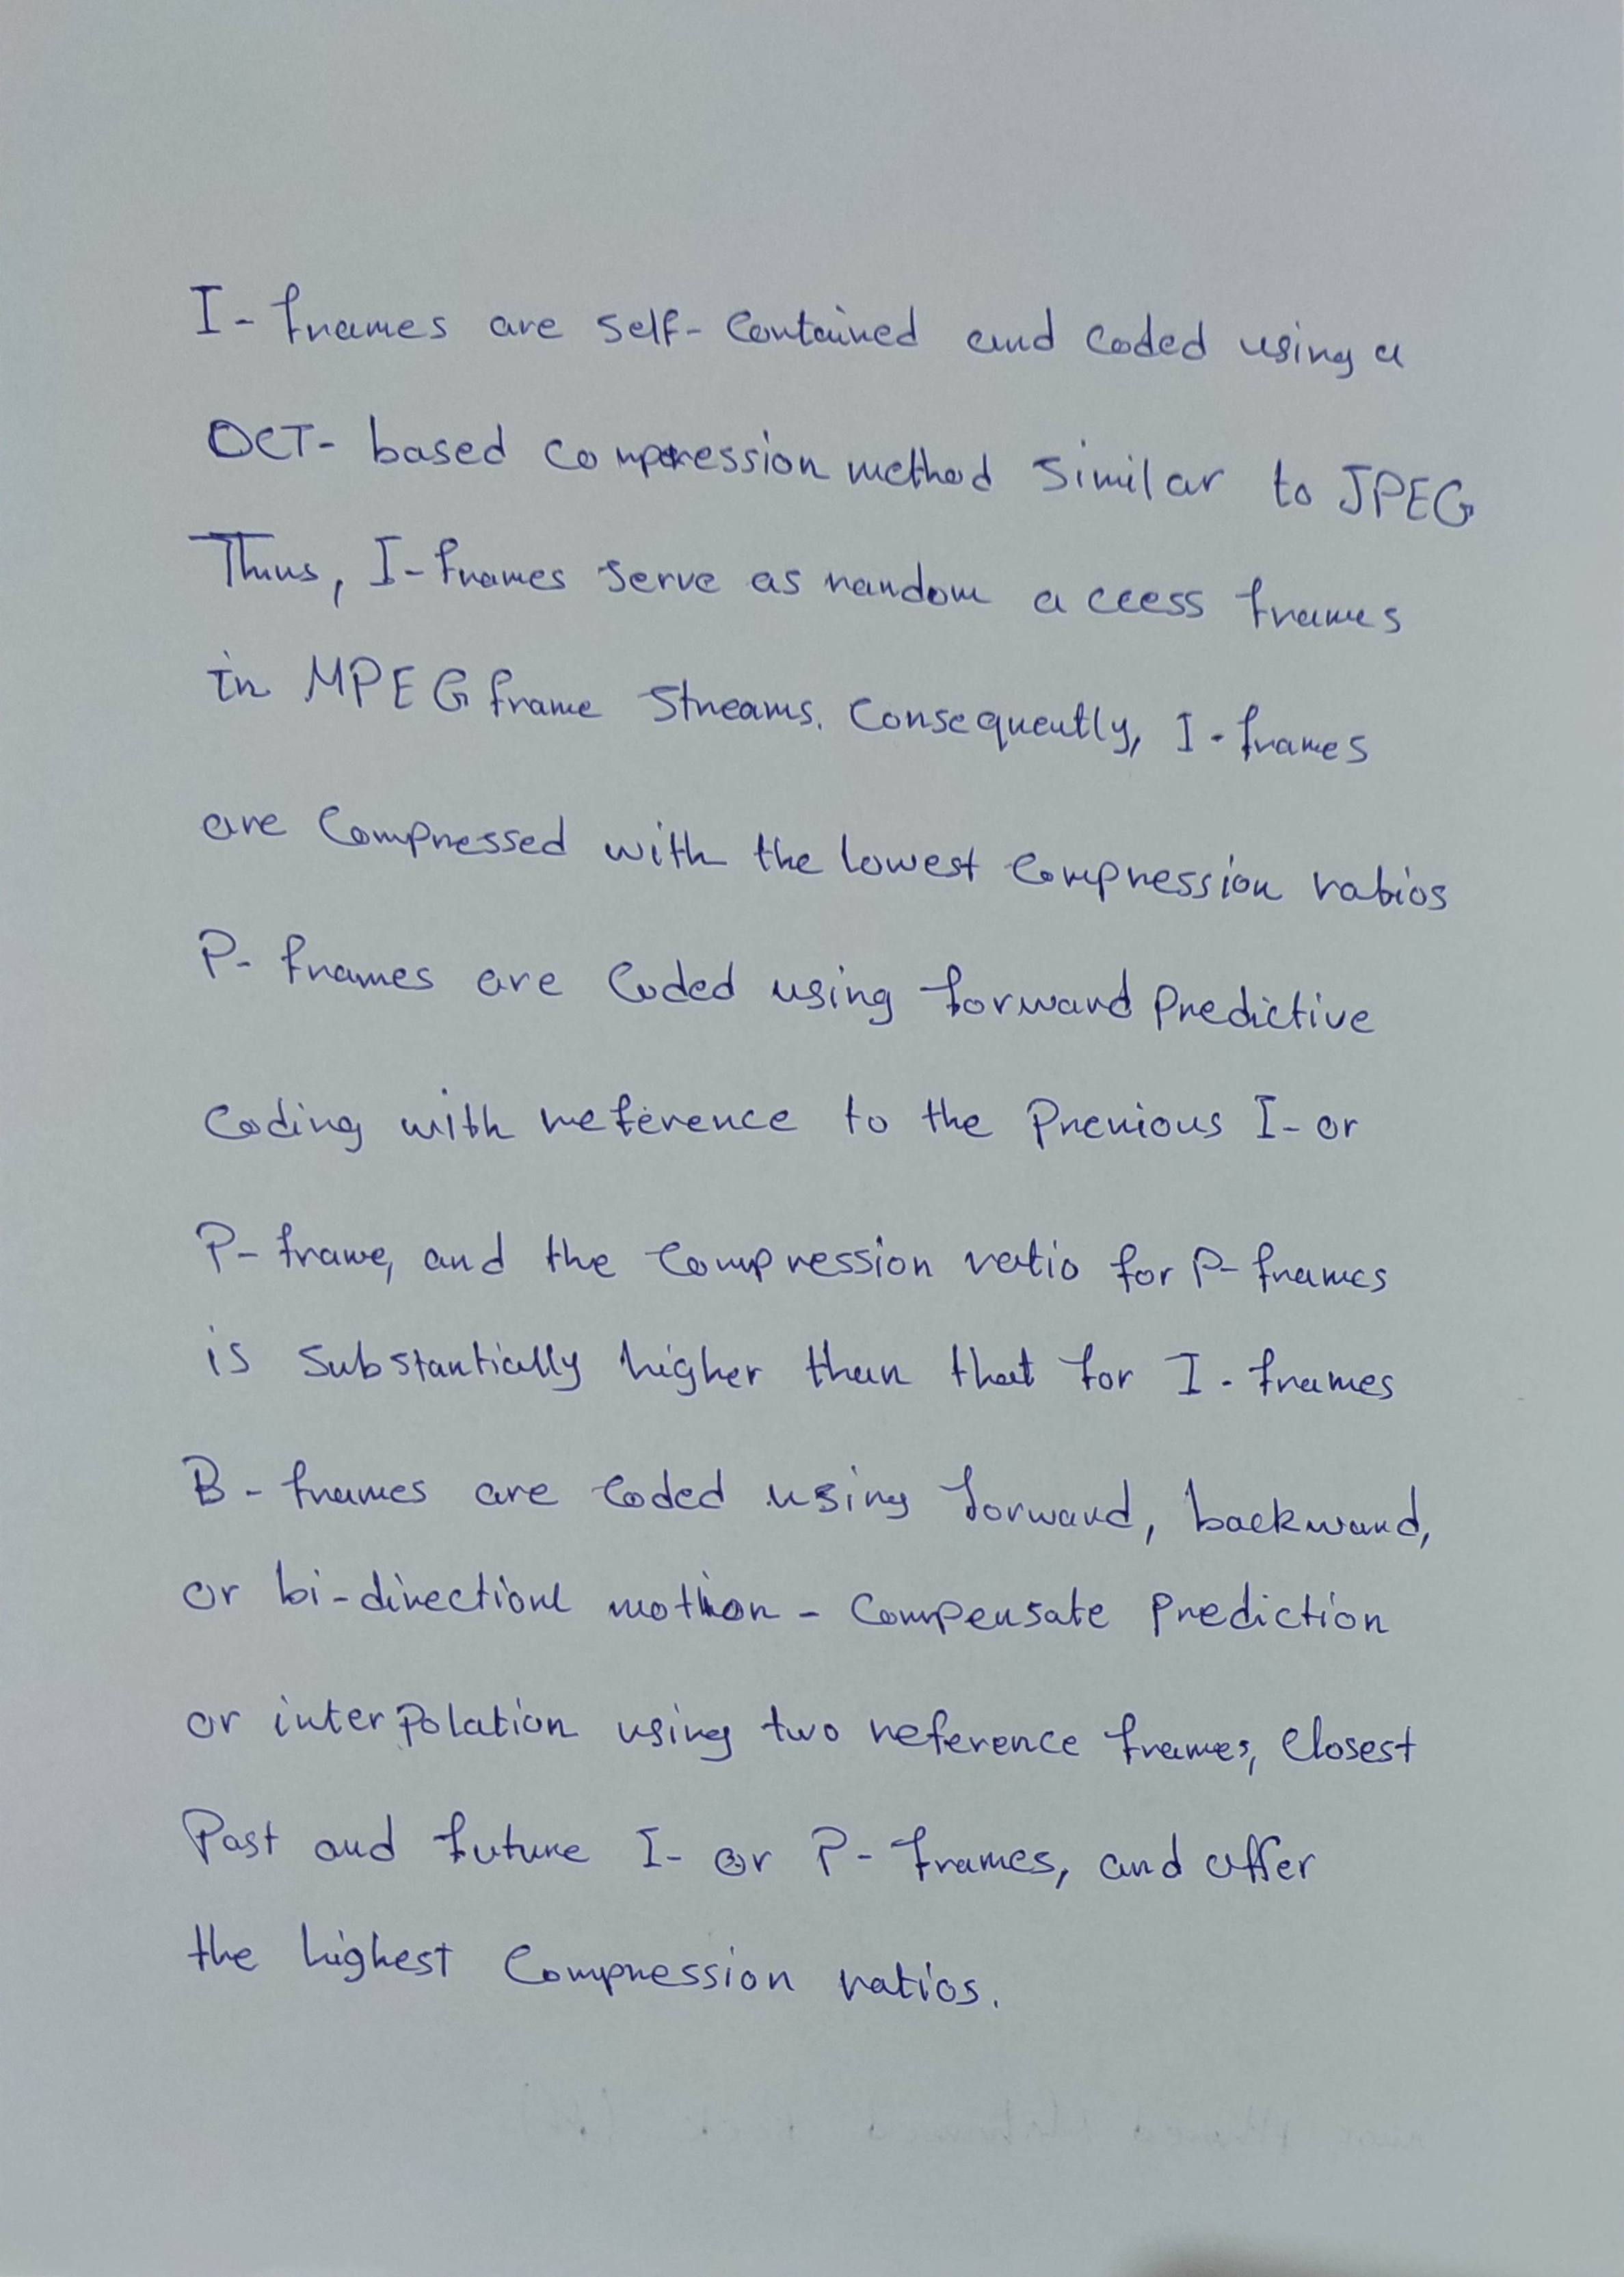 I- frames are self- Contained and Coded using a
DCT- based compression method similar to JPEG
Thus, I-frames serve as random access frames
in MPEG frame Streams. Consequently, I-frames
are Compressed with the lowest Compression ratios
P- frames are Coded using forward Predictive
Coding with reference to the Previous I- or
P- frame, and the Compression ratio for P- frames
is Substantially higher than that for I- frames
B- frames are Coded using forward, backward,
or bi-directionl motion - Compensate Prediction
or interpolation using two reference frames, Closest
Past and future I- or P- frames, and offer
the highest Compression ratios.